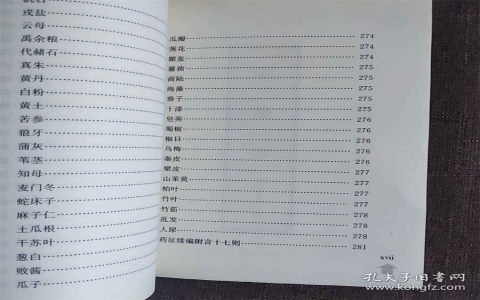 戎盐
云母
禹余粮
代赭石
真朱
黄丹
白粉
黄土
苦参
狼牙
蒲灰
苇茎
知母
麦门冬
蛇床子
麻子仁
土瓜根
干苏叶
葱白
败酱
瓜子
瓜瓣 274
莞花 274
瞿麦 274
薯蓣 275
商陆 275
海藻 275
葵子 275
干漆 275
皂荚 276
蜀椒 276
椒目 276
乌梅 276
秦皮 276
檗皮 277
山茱萸 277
柏叶 277
竹叶 277
竹茹 278
乱发 278
人尿 278
药征续编附言十七则 281
xvii
孔夫子旧书网
www.kongfz.com